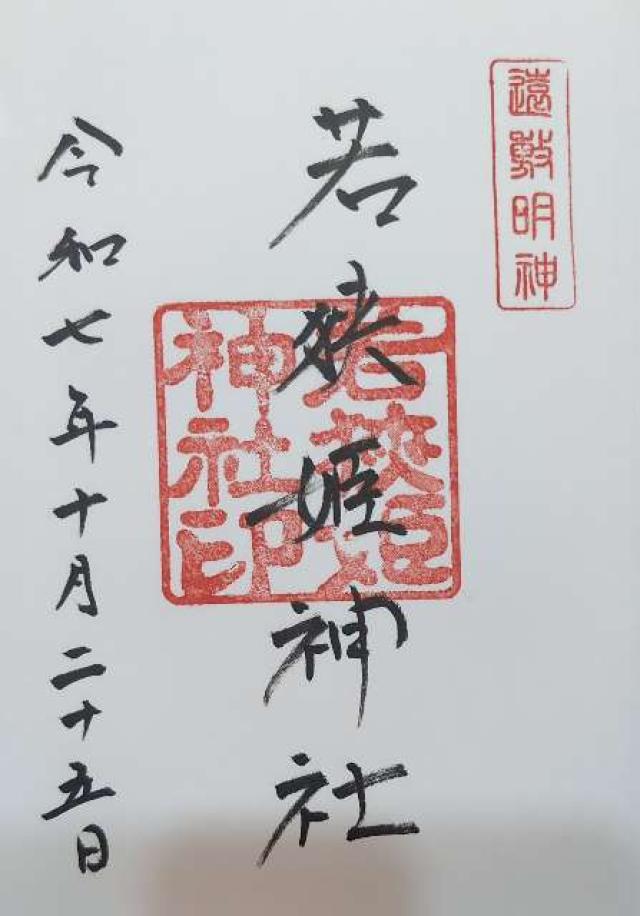 遠敷明神
若狭姫神社
若狭姫神社印
令和七年十月二十五日